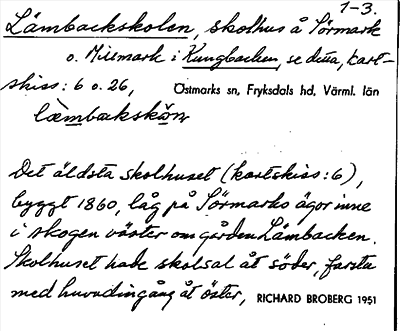 1-3.
Lämbackskolen, skolhus å Sörmark
o. Millmark i Kungbacken, se dessa, kart-
skiss: 6 o. 26,
Östmarks sn, Fryksdals hd, Värml. län
læmbakskŏn
Det äldsta skolhuset (kartskiss: 6),
byggt 1860, låg på Sörmarks ägor inne
i skogen väster om gården Lämbacken.
Skolhuset hade skolsal åt söder, farstu
med huvudingång åt öster,
RICHARD BROBERG 1951